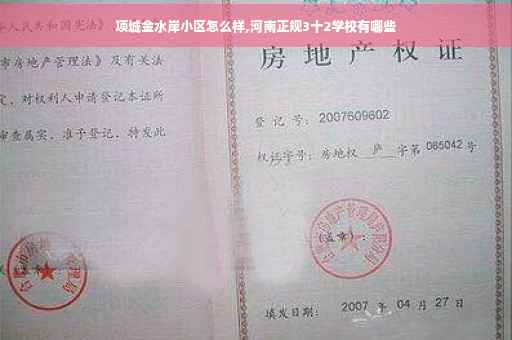 项城金水岸小区怎么样,河南正规3十2学校有哪些
人民共和国宪法》
市房地产管理法》及有关法
定，对权利人申请登记本证所
审查属实，准予登记，特发此
房地产权证
登记号：2007609602
权证字号：房地权 庐 字第 085042 号
(盖章)：
填发日期：2007 年 04 月 27 日